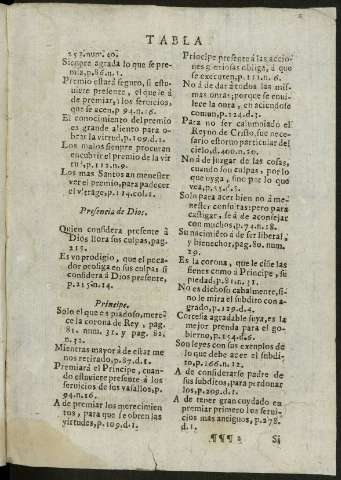 TABLA
252.num.10.
Siempre agrada lo que se premia, p.86.n.1.
Premio estará seguro, si estuuiere presente, el que le à
de premiar, i los seruicios,
que se acen, p.94.n.16.
El conocimiento del premio
es grande aliento para obrar la virtud, p.109.d.1.
Los malos siempre procuran
encubrir el premio de la virtud, p.112.n.9.
Los mas Santos an menester
ver el premio, para padecer
el vltrage, p.114.col.1.
Presencia de Dios.
Quien considera presente à
Dios llora sus culpas, pag.
215.
Es vn prodigio, que el pecador prosiga en sus culpas si
considera à Dios presente,
p.215.n.14.
Principe.
Solo el que es piadoso, merece la corona de Rey, pag.
81. num. 31. y pag. 82.
n.32.
Mientras mayor à de estar menos retirado, p.87.d.1.
Premiarà el Principe, cuando estuuiere presente à los
seruicios de sus vasallos, p.
94.n.16.
A de premiar los merecimientos, para que se obren las
virtudes, p.109.d.1.
Principe presente à las acciones gloriosas obliga, à que
se executen, p.111.n.6.
No à de dar à todos las mismas onras; porque se enuilece la onra, en aciendose
comun, p.124.d.3.
Para no ser calumniado el
Reyno de Cristo, fue necesario estorno particular del
cielo, d.400.n.20.
No à de juzgar de las cosas,
cuando son culpas, por lo
que oyga, sino por lo que
vea, p.53.d.3.
Solo para acer bien no à menester consulta; pero para
castigar, se à de aconsejar
con muchos, p.74.n.18.
Su nacimiento à de ser liberal,
y bienechor, pag.80. num.
29.
Es la corona, que le ciñe las
sienes como à Principe, su
piedad, p.81.n.31.
No es dichoso cabalmente, si no le mira el subdito con agrado, p.129.d.4.
Cortesia agradable suya, es la
mejor prenda para el gobierno, p.154.d.6.
Son leyes con sus exemplos de
lo que debe acer el subdito, p.166.n.12.
A de considerarse padre de
sus subditos, para perdonarlos, p.209.d.1.
A de tener gran cuydado en
premiar primero los seruicios mas antiguos, p.278.
d.1.
¶¶¶ 2
Si